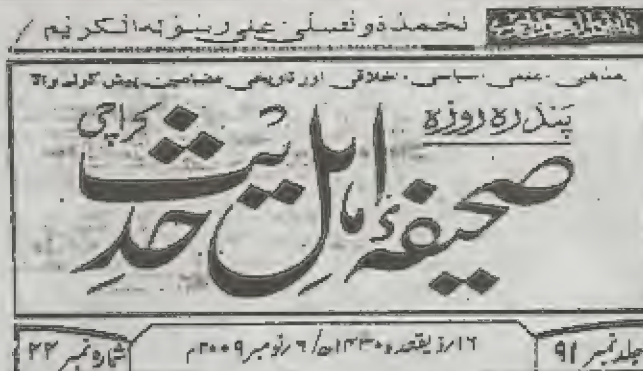 نحمدہ ونصلی علی رسولہ الکریم
مذہبی، علمی، سیاسی، اخلاقی اور تاریخی مضامین پیش کرنے والا
پندرہ روزہ
صحیفۂ اہل حدیث کراچی
جلد نمبر ۹۱
۱۶/ذیقعدہ ۱۴۳۰ھ/ ۶ نومبر ۲۰۰۹م
شمارہ نمبر ۲۲